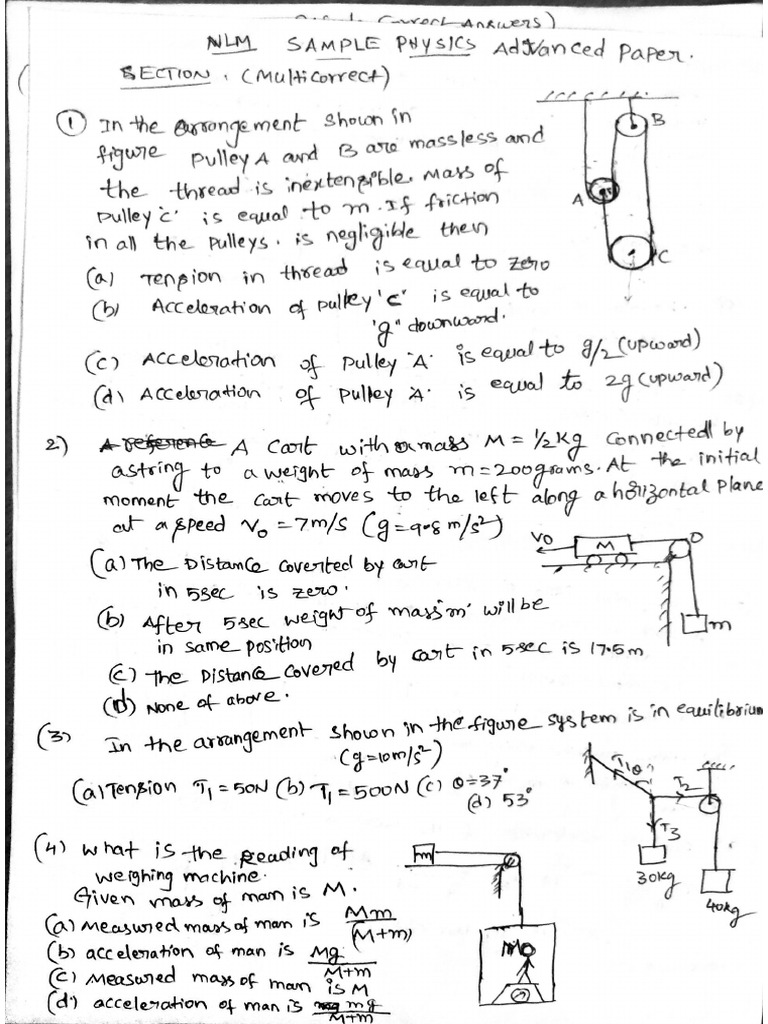 (Correct Answers)
NLM SAMPLE PHYSICS Advanced Paper.
SECTION. (Multicorrect)
① In the arrangement shown in
figure Pulley A and B are massless and
the thread is inextensible. Mass of
pulley 'c' is equal to m. If friction
in all the pulleys. is negligible then
(a) Tension in thread is equal to zero
(b) Acceleration of pulley 'c' is equal to
'g' downward.
(c) Acceleration of pulley 'A' is equal to g/2 (upward)
(d) Acceleration of pulley 'A' is equal to 2g (upward)
B
A
C
2) A reference A Cart with a mass M = 1/2 kg connected by
a string to a weight of mass m = 200 grams. At the initial
moment the cart moves to the left along a horizontal plane
at a speed V₀ = 7m/s (g = 9.8 m/s²)
(a) The Distance coverted by cart
in 5sec is zero.
(b) After 5sec weight of mass 'm' will be
in same position
(c) the Distance covered by cart in 5sec is 17.5m
(d) None of above.
V0
M
m
(3) In the arrangement shown in the figure system is in equilibrium
(g=10m/s²)
(a) Tension T₁ = 50N (b) T₁ = 500N (c) θ=37°
(d) 53°
T₁ θ
T₂
T3
30kg
40kg
(4) What is the reading of
weighing machine.
Given mass of man is M.
(a) Measured mass of man is Mm/(M+m)
(b) acceleration of man is Mg/M+m
(c) Measured mass of man is M
(d) acceleration of man is mg/M+m
m
M